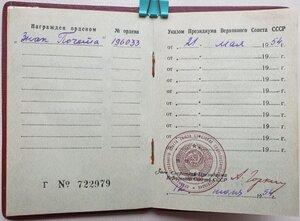 Награжден орденом
№ ордена
"Знак Почета"
196033
Г № 722979
Указом Президиума Верховного Совета СССР
от "21" мая 1954 г.
от " " 195 г.
от " " 195 г.
от " " 195 г.
от " " 195 г.
от " " 195 г.
Секретарь Президиума
Верховного Совета СССР
1954 г.